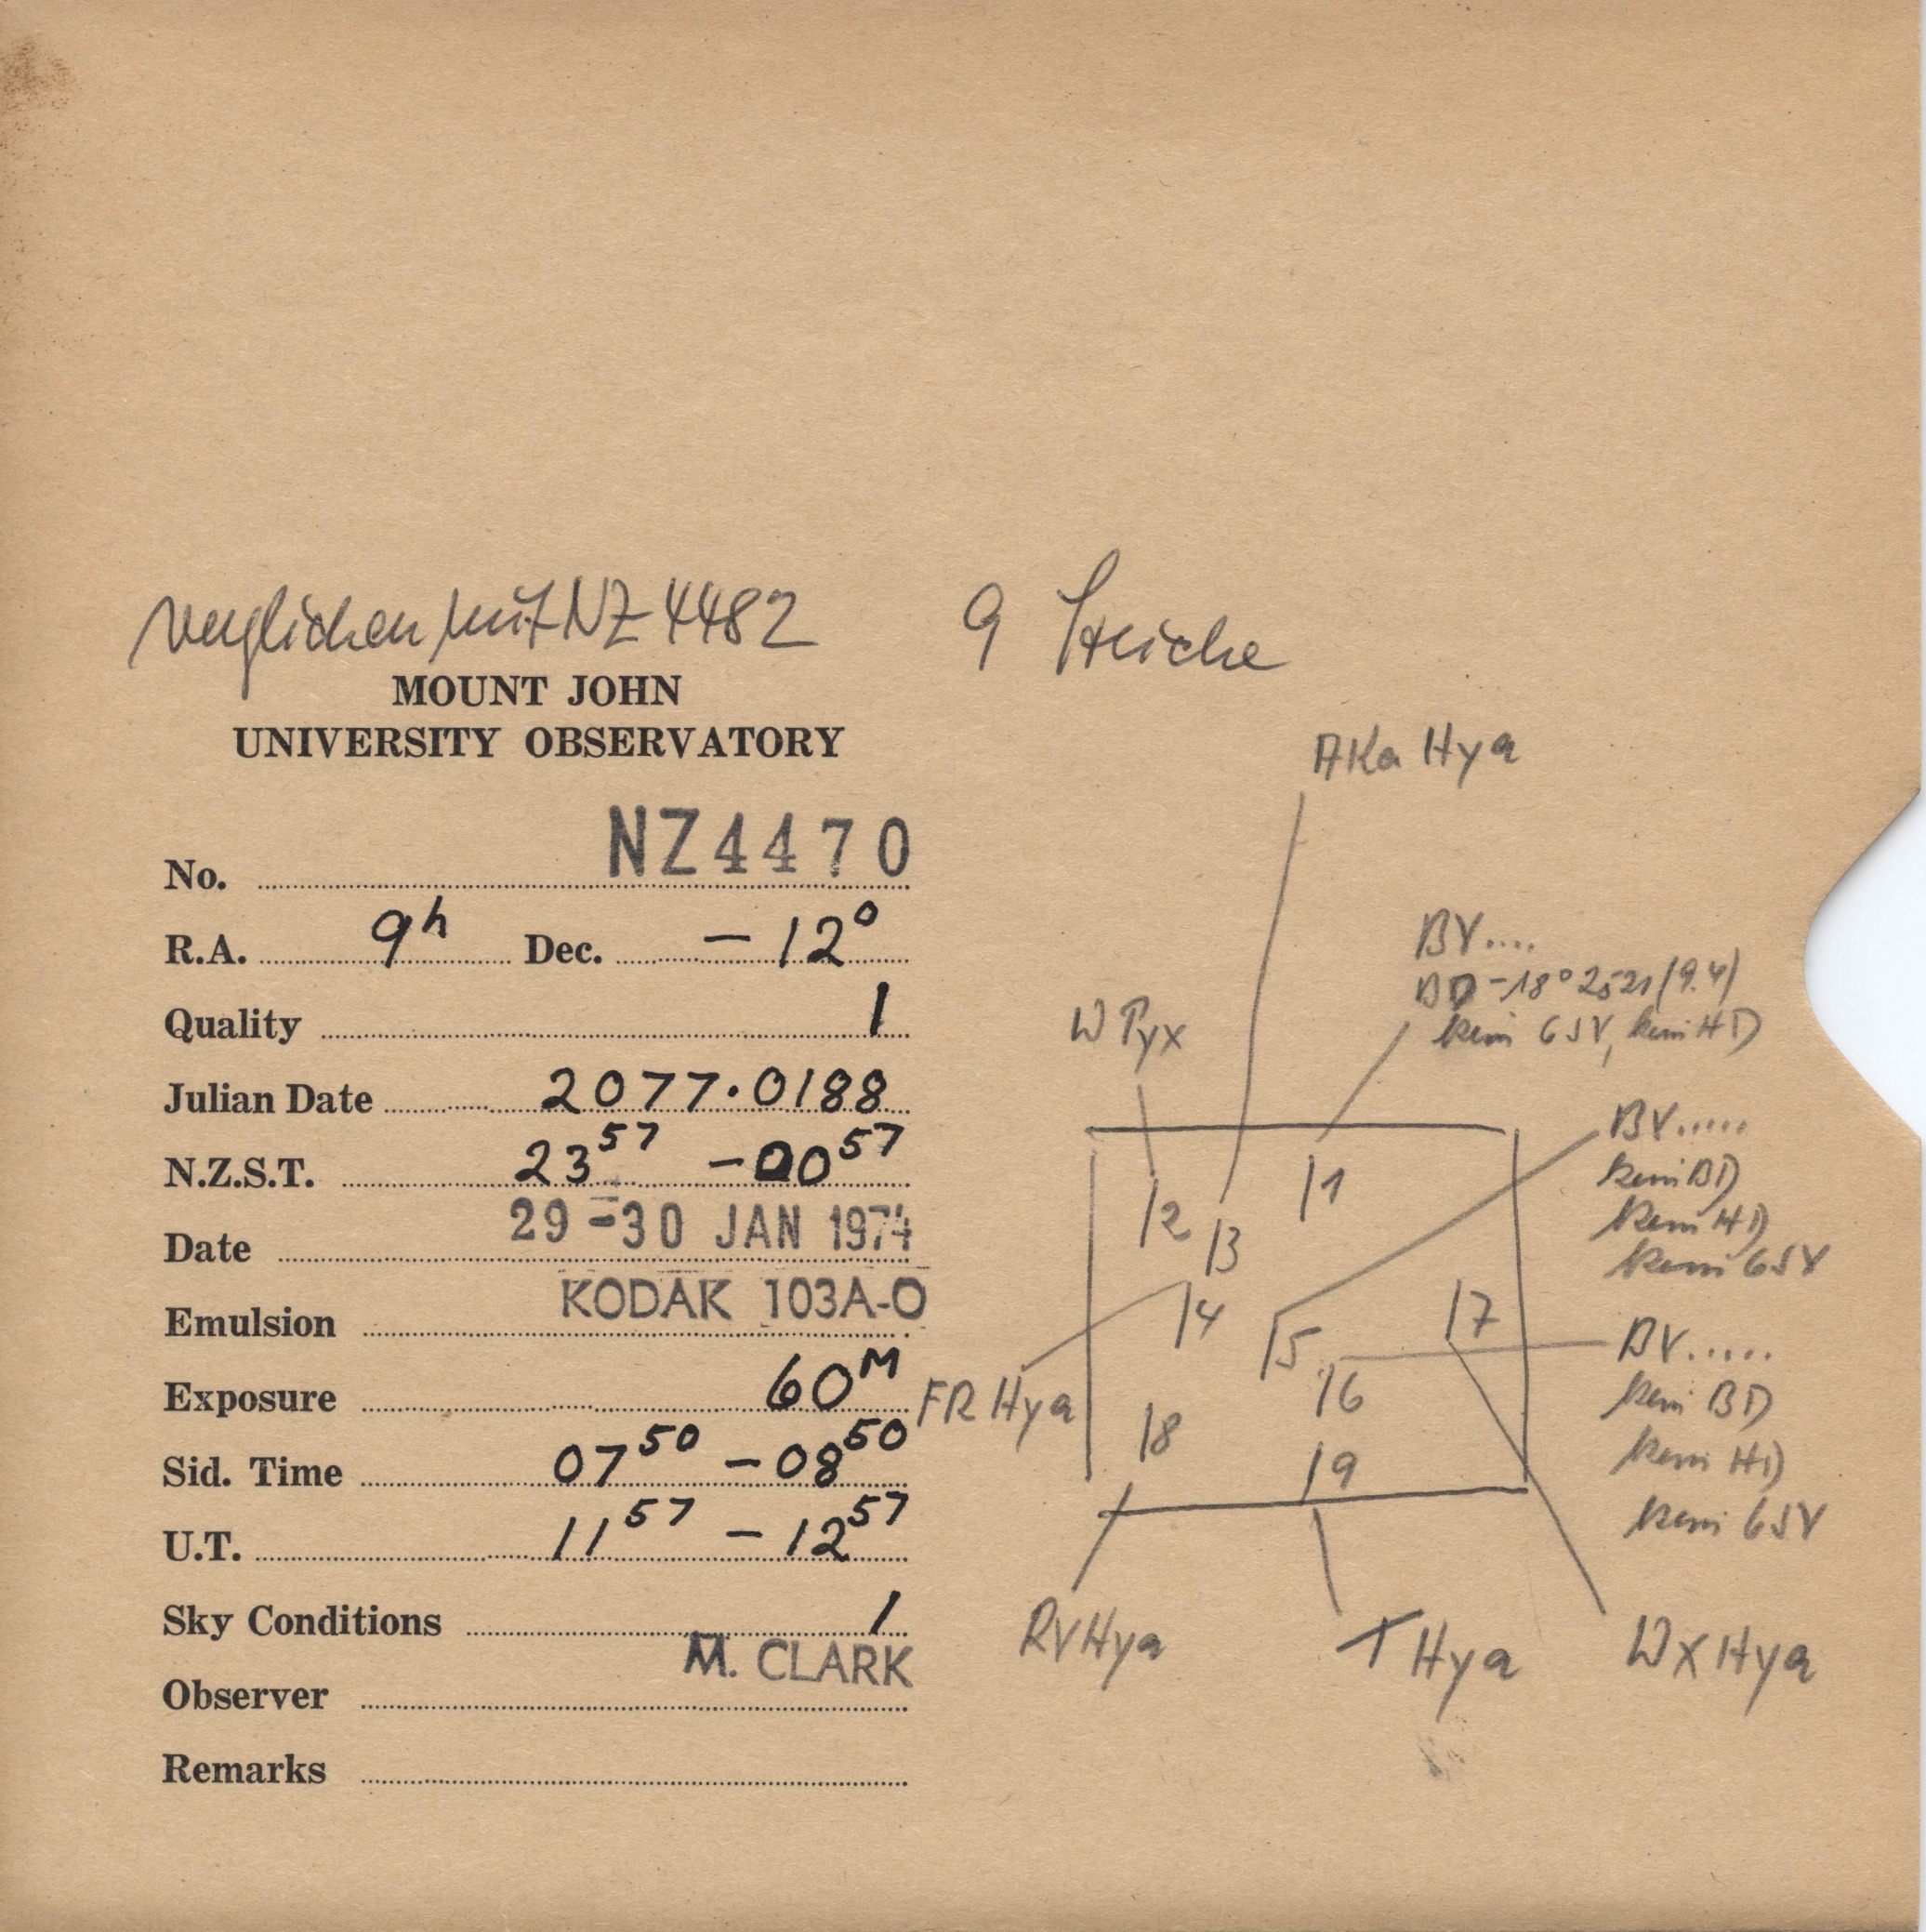 verglichen mit NZ 4482
9 Striche
MOUNT JOHN
UNIVERSITY OBSERVATORY
No. NZ4470
R.A. 9h Dec. -12°
Quality 1
Julian Date 2077.0188
N.Z.S.T. 23 57 - 00 57
Date 29-30 JAN 1974
Emulsion KODAK 103A-O
Exposure 60M
Sid. Time 07 50 - 08 50
U.T. 11 57 - 12 57
Sky Conditions 1
Observer M. CLARK
Remarks
AKa Hya
BV....
BD -18° 2521 (9.4)
kein GSV, kein HD
W Pyx
BV.....
kein BD
kein HD
kein GSV
/1
/2
/3
/4
/5
/6
/7
/8
/9
FR Hya
BV.....
kein BD
kein HD
kein GSV
RV Hya
T Hya
WX Hya